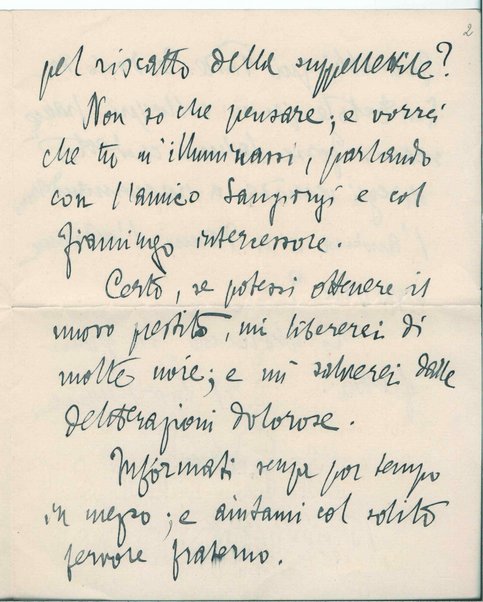 2
pel riscatto della suppellettile?
Non so che pensare; e vorrei
che tu m'illuminassi, parlando
con l'amico Sangiorgi e col
fiamingo intercessore.
Certo, se potessi ottenere il
nuovo prestito, mi libererei di
molte noie; e mi salverei dalle
deliberazioni dolorose.
Informati senza por tempo
in mezzo; e aiutami col solito
fervore fraterno.